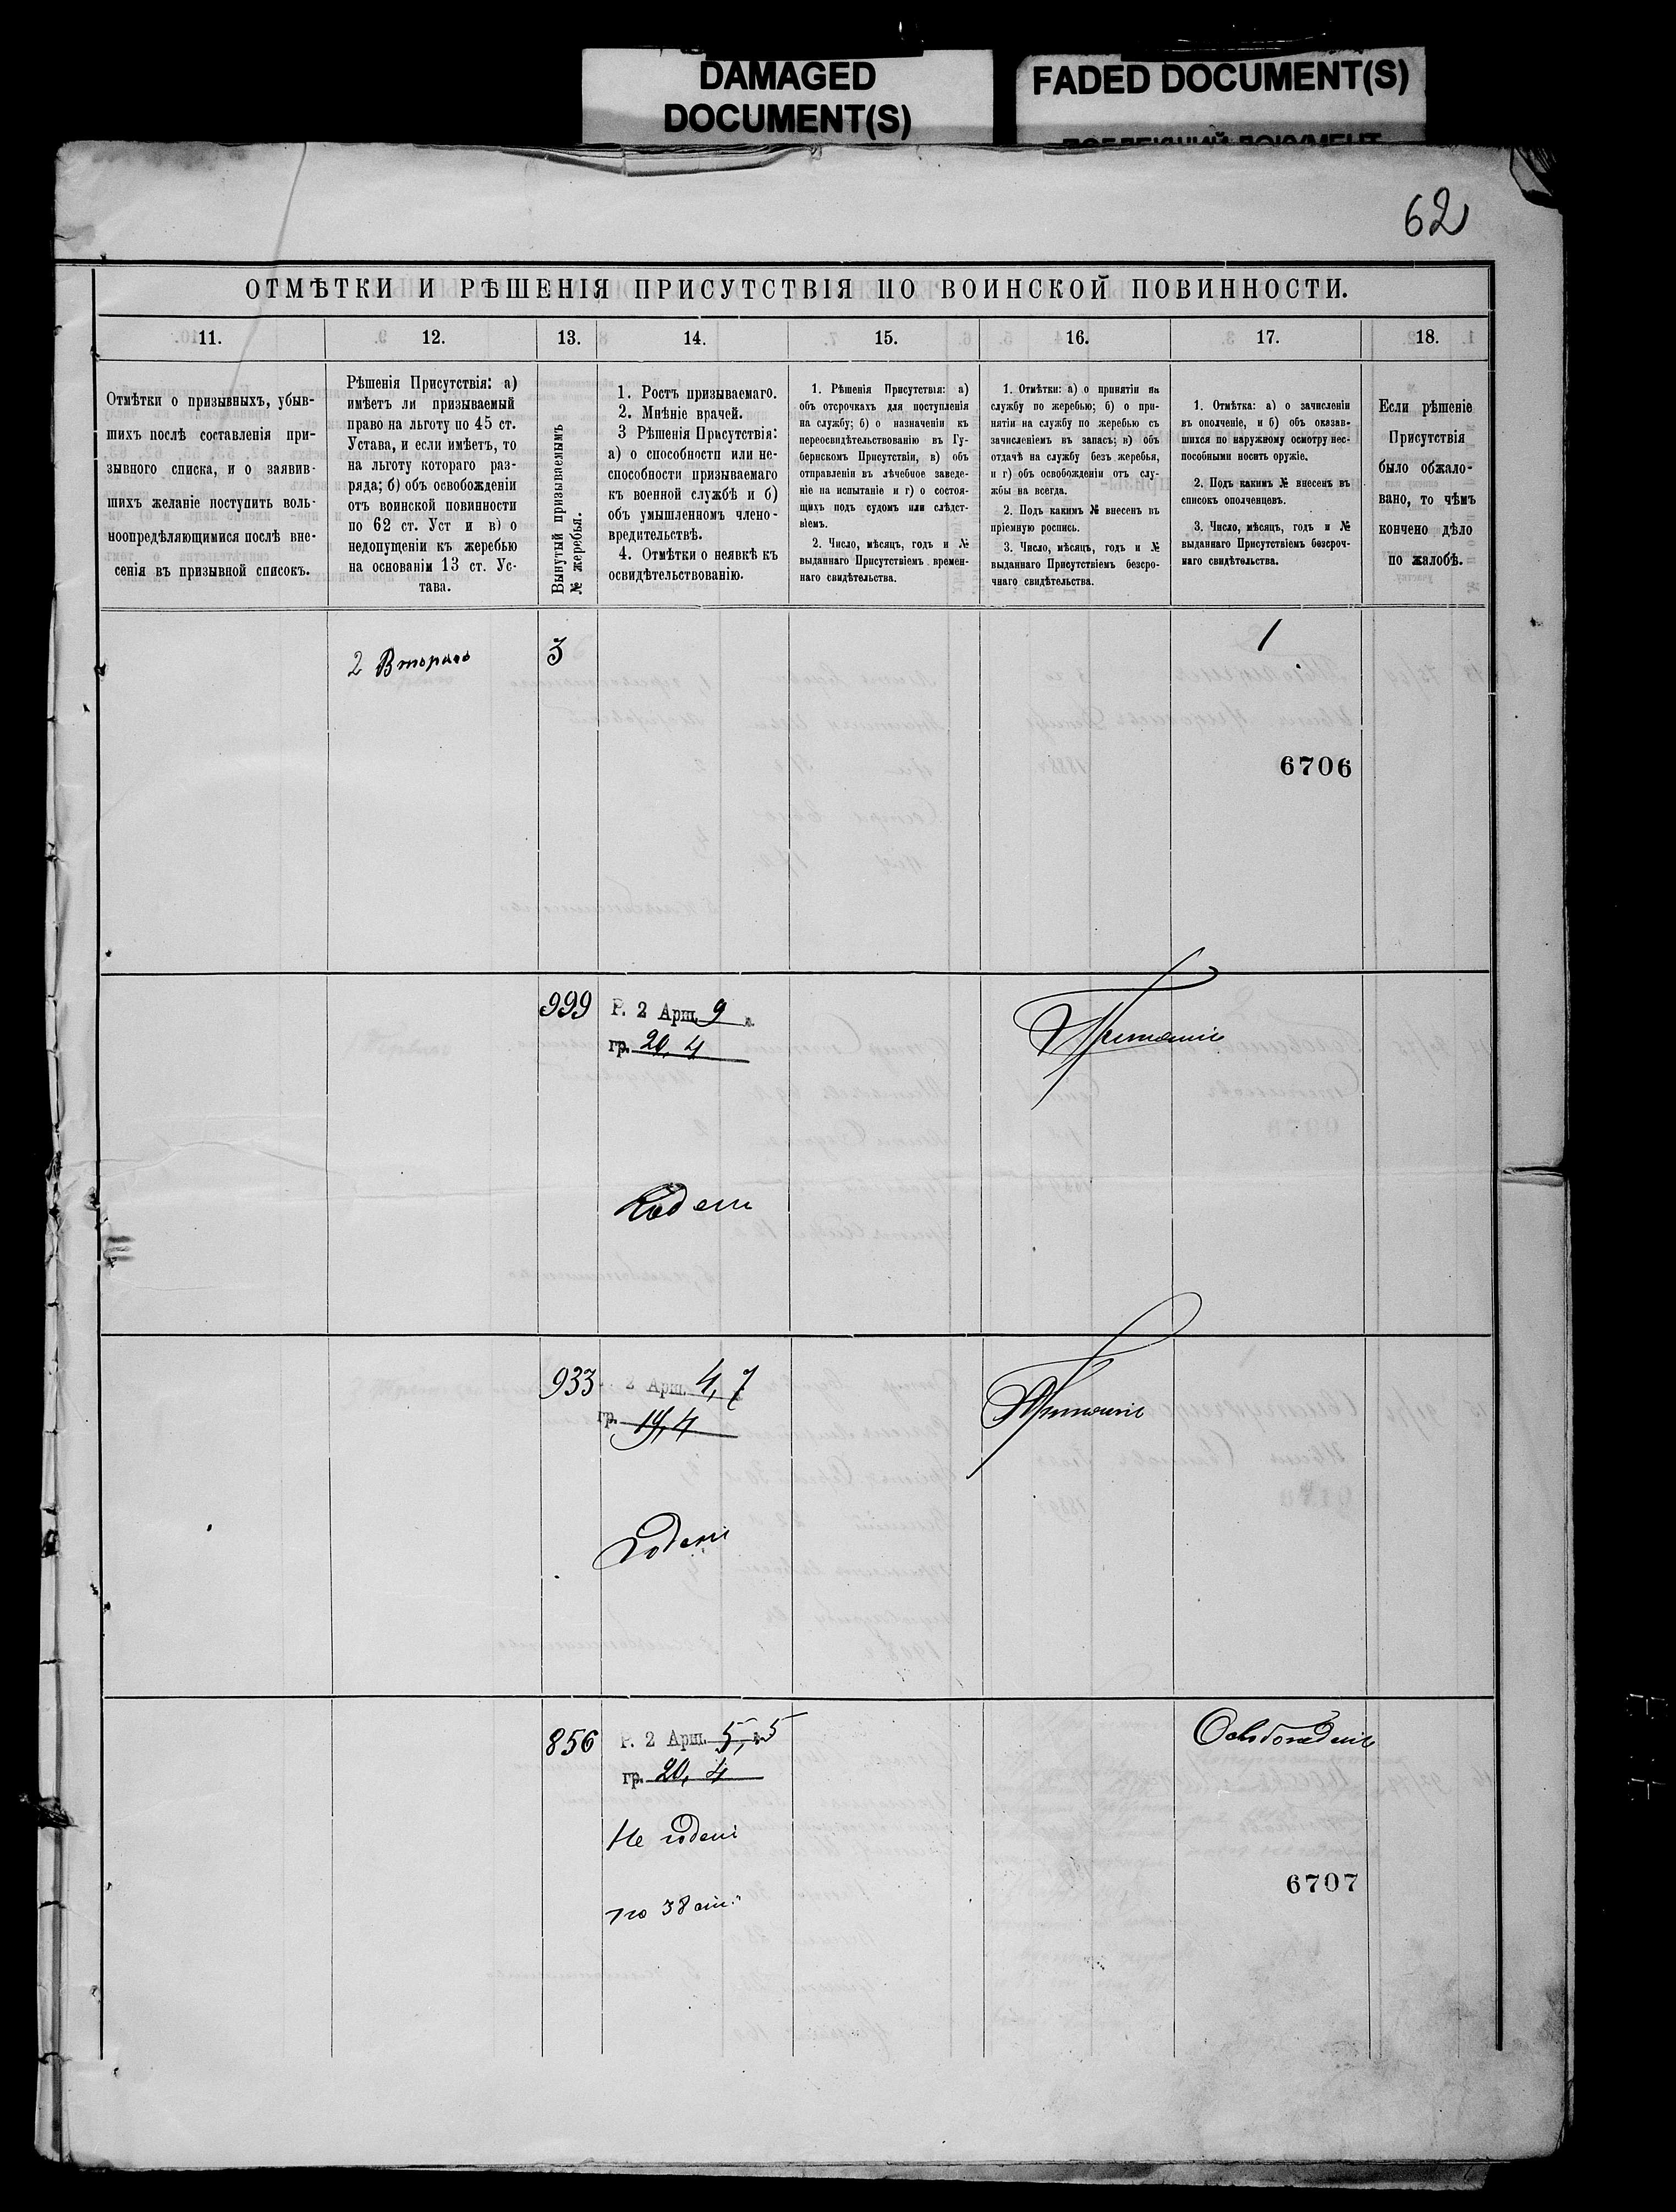 DAMAGED
DOCUMENT(S)
FADED DOCUMENT(S)
62
ОТМѢТКИ И РѢШЕНІЯ ПРИСУТСТВІЯ ПО ВОИНСКОЙ ПОВИННОСТИ.
11.
12.
13.
14.
15.
16.
17.
18.
Отмѣтки о призывныхъ, убыв-
шихъ послѣ составленія при-
зывного списка, и о заявив-
шихъ желаніе поступить воль-
ноопредѣляющимися послѣ вне-
сенія въ призывной списокъ.
Рѣшенія Присутствія: а)
имѣетъ ли призываемый
право на льготу по 45 ст.
Устава, и если имѣетъ, то
на льготу котораго раз-
ряда; б) объ освобожденіи
отъ воинской повинности
по 62 ст. Уст и в) о
недопущеніи къ жеребью
на основаніи 13 ст. Ус-
тава.
Вынутый призываемымъ
№ жеребья.
1. Ростъ призываемаго.
2. Мнѣніе врачей.
3 Рѣшенія Присутствія:
а) о способности или не-
способности призываемаго
къ военной службѣ и б)
объ умышленномъ члено-
вредительствѣ.
4. Отмѣтки о неявкѣ къ
освидѣтельствованію.
1. Рѣшенія Присутствія: а)
объ отсрочкахъ для поступленія
на службу; б) о назначеніи къ
переосвидѣтельствованію въ Гу-
бернскомъ Присутствіи, в) объ
отправленіи въ лѣчебное заведе-
ніе на испытаніе и г) о состоя-
щихъ подъ судомъ или слѣдст-
віемъ.
2. Число, мѣсяцъ, годъ и №
выданнаго Присутствіемъ времен-
наго свидѣтельства.
1. Отмѣтки: а) о принятіи на
службу по жеребью; б) о при-
нятіи на службу по жеребью съ
зачисленіемъ въ запасъ; в) объ
отдачѣ на службу безъ жеребья,
и г) объ освобожденіи отъ слу-
жбы на всегда.
2. Подъ какимъ № внесенъ въ
пріемную роспись.
3. Число, мѣсяцъ, годъ и №
выданнаго Присутствіемъ безсро-
чнаго свидѣтельства.
1. Отмѣтка: а) о зачисленіи
въ ополченіе, и б) объ оказав-
шихся по наружному осмотру нес-
пособными носить оружіе.
2. Подъ какимъ № внесенъ въ
списокъ ополченцевъ.
3. Число, мѣсяцъ, годъ и №
выданнаго Присутствіемъ безсроч-
наго свидѣтельства.
Если рѣшеніе
Присутствія
было обжало-
вано, то чѣмъ
кончено дѣло
по жалобѣ.
2 Второго
3
1
6706
999
Р. 2 Арш. 9 в.
гр. 20,4
Принятъ
Годенъ
933
2 Арш. 4,7
гр. 19,4
Принятъ
Годенъ
856
Р. 2 Арш. 5,5
гр. 20,4
Не годенъ
по 38 ст.
Освобожденъ
6707